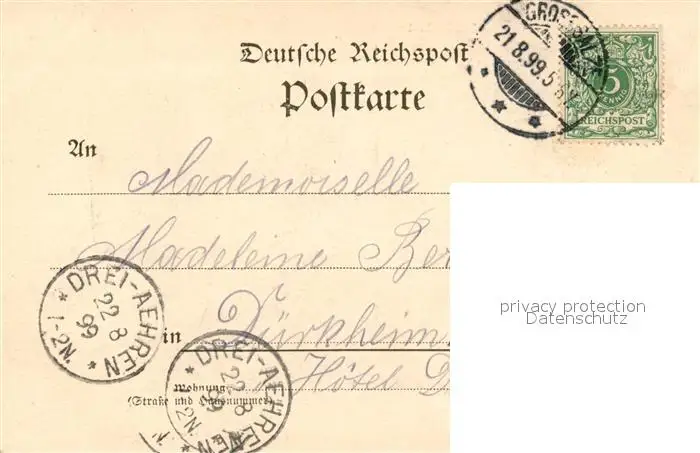 Deutsche Reichspost
Postkarte
GROSS
21.8.99.5
5
REICHSPOST
An
Mademoiselle
Madeleine Ber
in Dürkheim,
Hôtel D
Wohnung
(Straße und Hausnummer)
* DREI-AEHREN *
22 8
99
1-2N.
* DREI-AEHREN
22 8
99
2N.
N.
privacy protection
Datenschutz